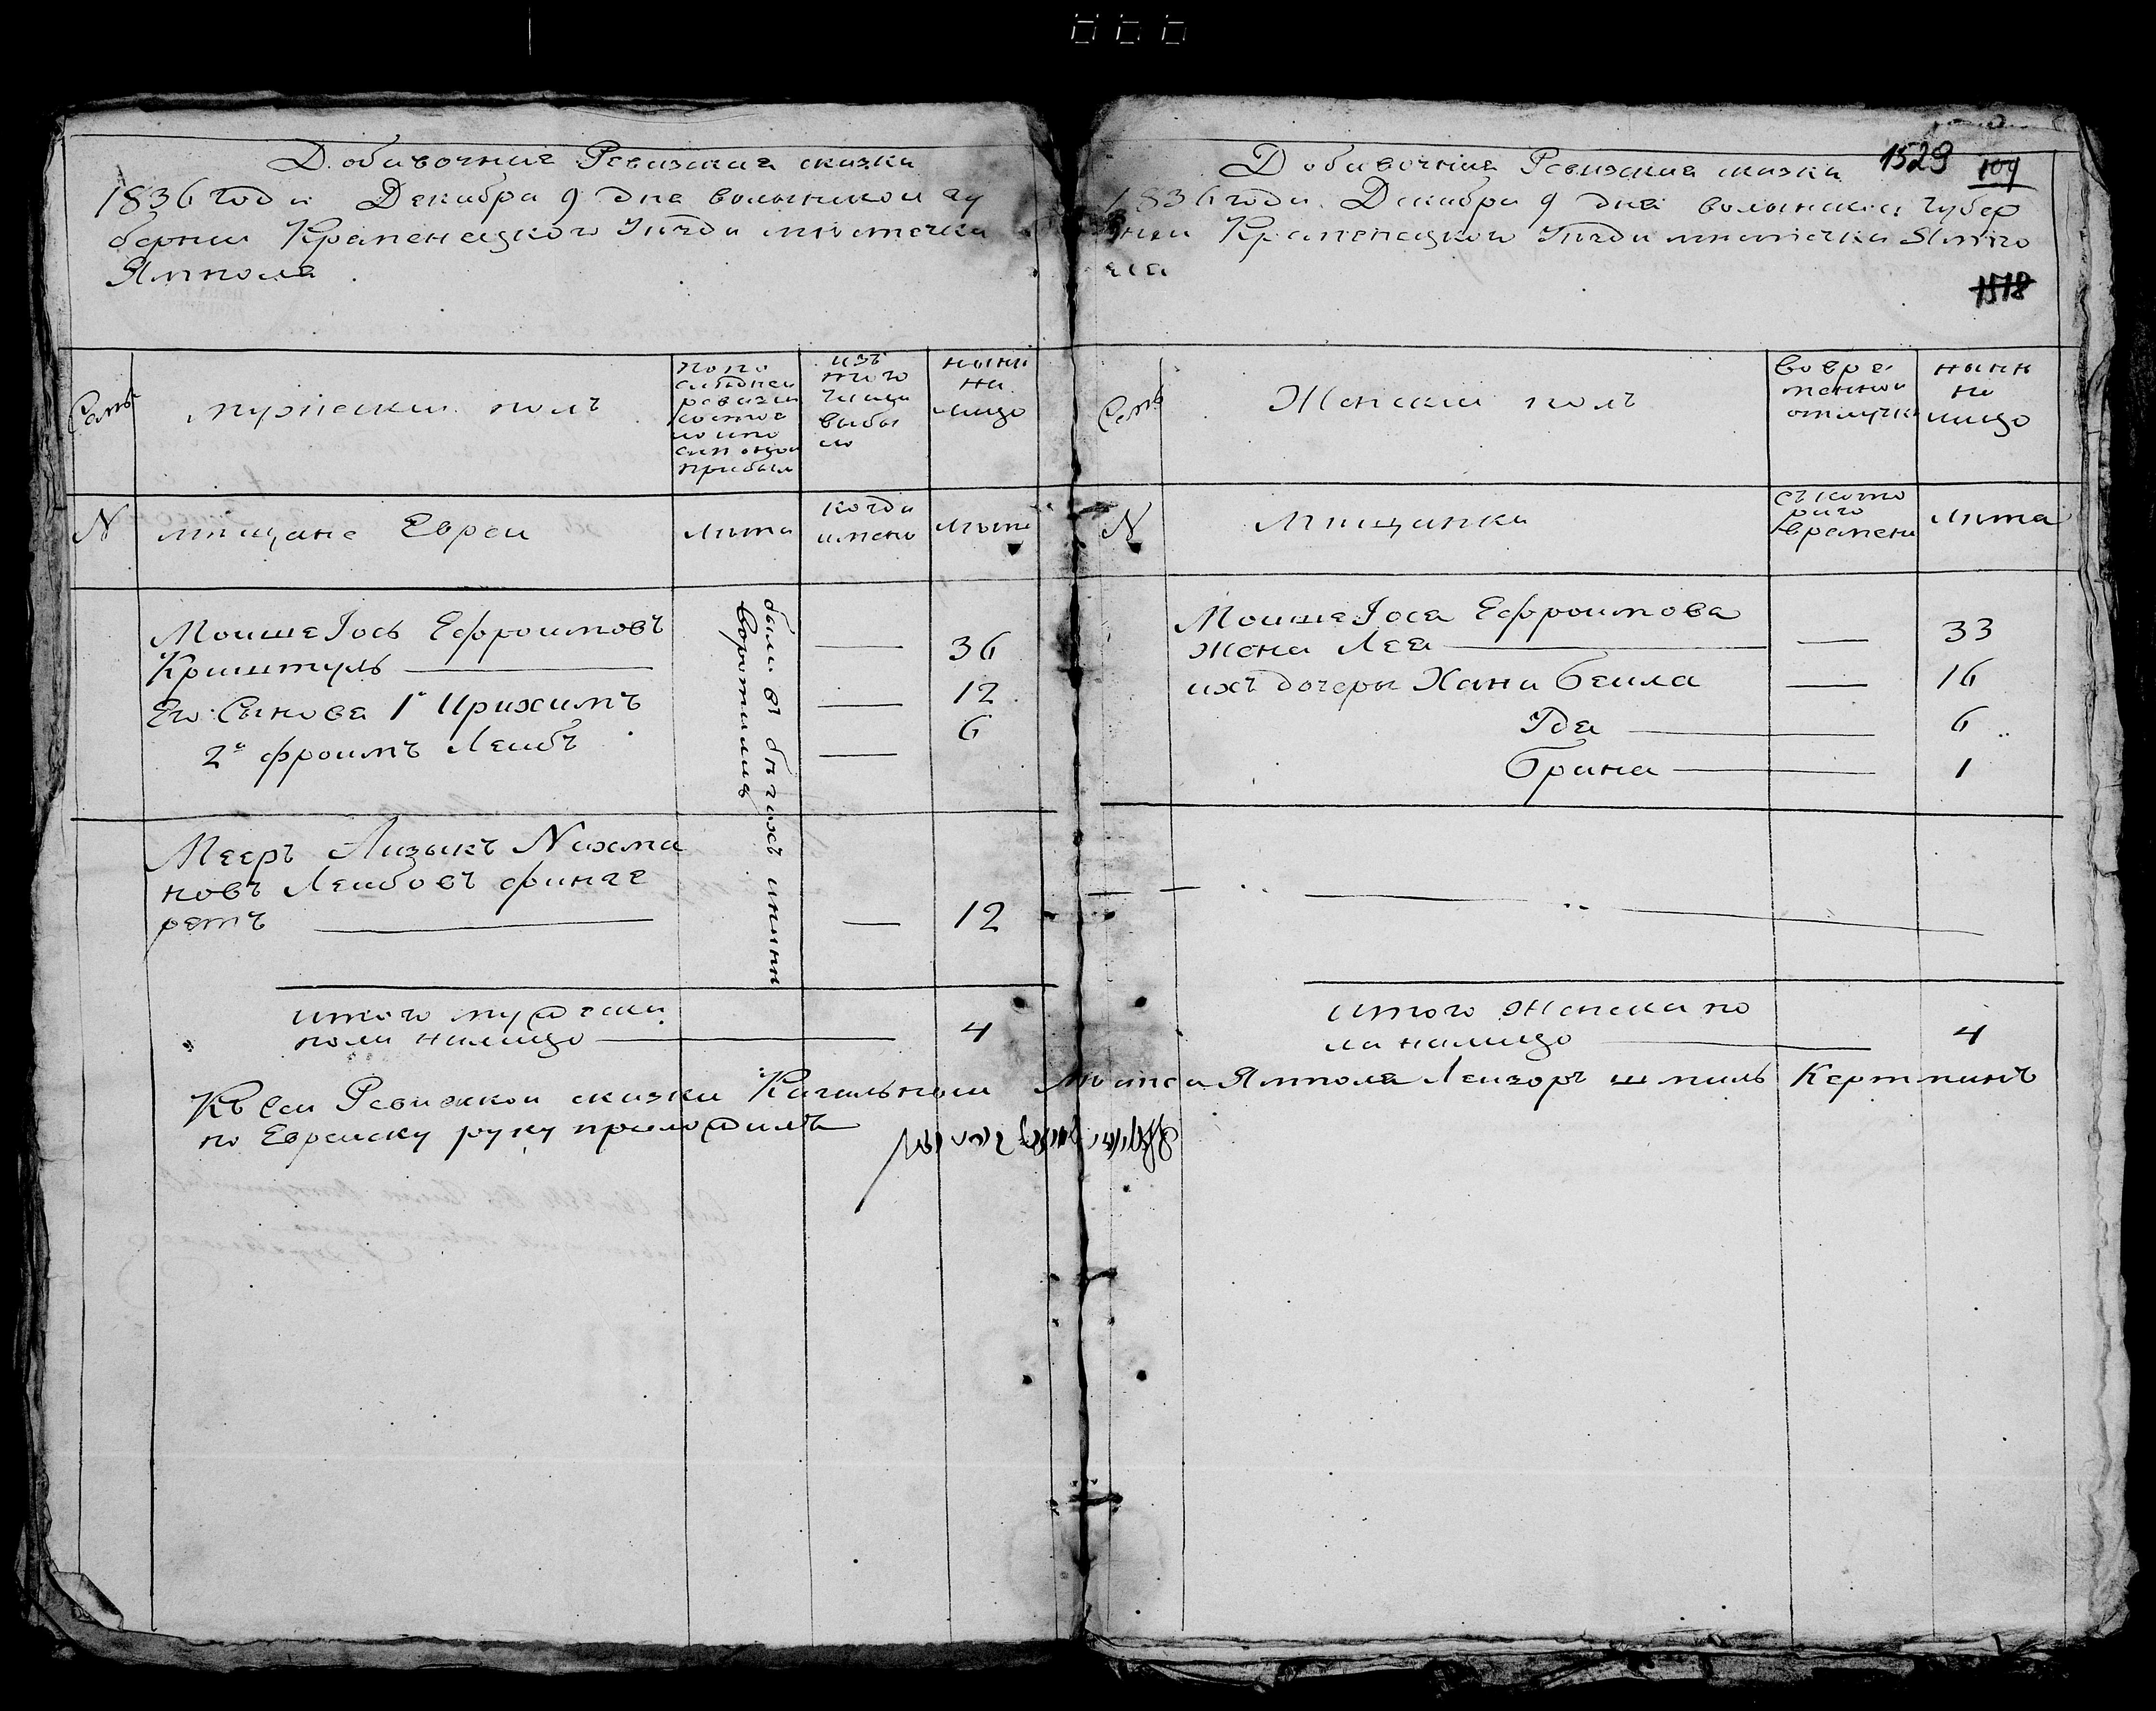 Добавочная Ревизская сказка
1836 года Декабра 9 дня волынской гу
бернии Кременецкого Уезда местечка
Ямполя
Семъ
мужеский полъ
по по
следней
ревизии
состоя
ло и по
сле оной
прибыло
изъ
того
числа
выбы
ло
ныни
на
лицо
N
мещане Евреи
Лета
когда
имено
Лета
Моише Іось Ефроимовъ
Криштуль
36
Его Сынова 1й Ирихимъ
12
2й фроимъ Леибъ
6
были въ бегахъ и ныни
воротились
Мееръ Аизыкъ Nахма
новъ Леибовъ финге
ретъ
12
итого мужеска
пола налицо
4
1529
109
Добавочная Ревизская сказка
1836 года Декабра 9 дня волынской Губер
нии Кременецкого Уезда местечка Ямпо
ля
1518
Семъ
Женский полъ
во вре
менной
отлучки
ныни
на
лицо
N
Мещанки
съ кото
раго
времени
Лета
Моише Іоса Ефроимова
жена Леа
33
ихъ дочеры Хана Беила
16
Гда
6
Брина
1
итого Женска по
ла налицо
4
Къ сеи Ревизкой сказки Кагальный Ямполя Леизоръ шмиль
по Евреиску руку приложилъ